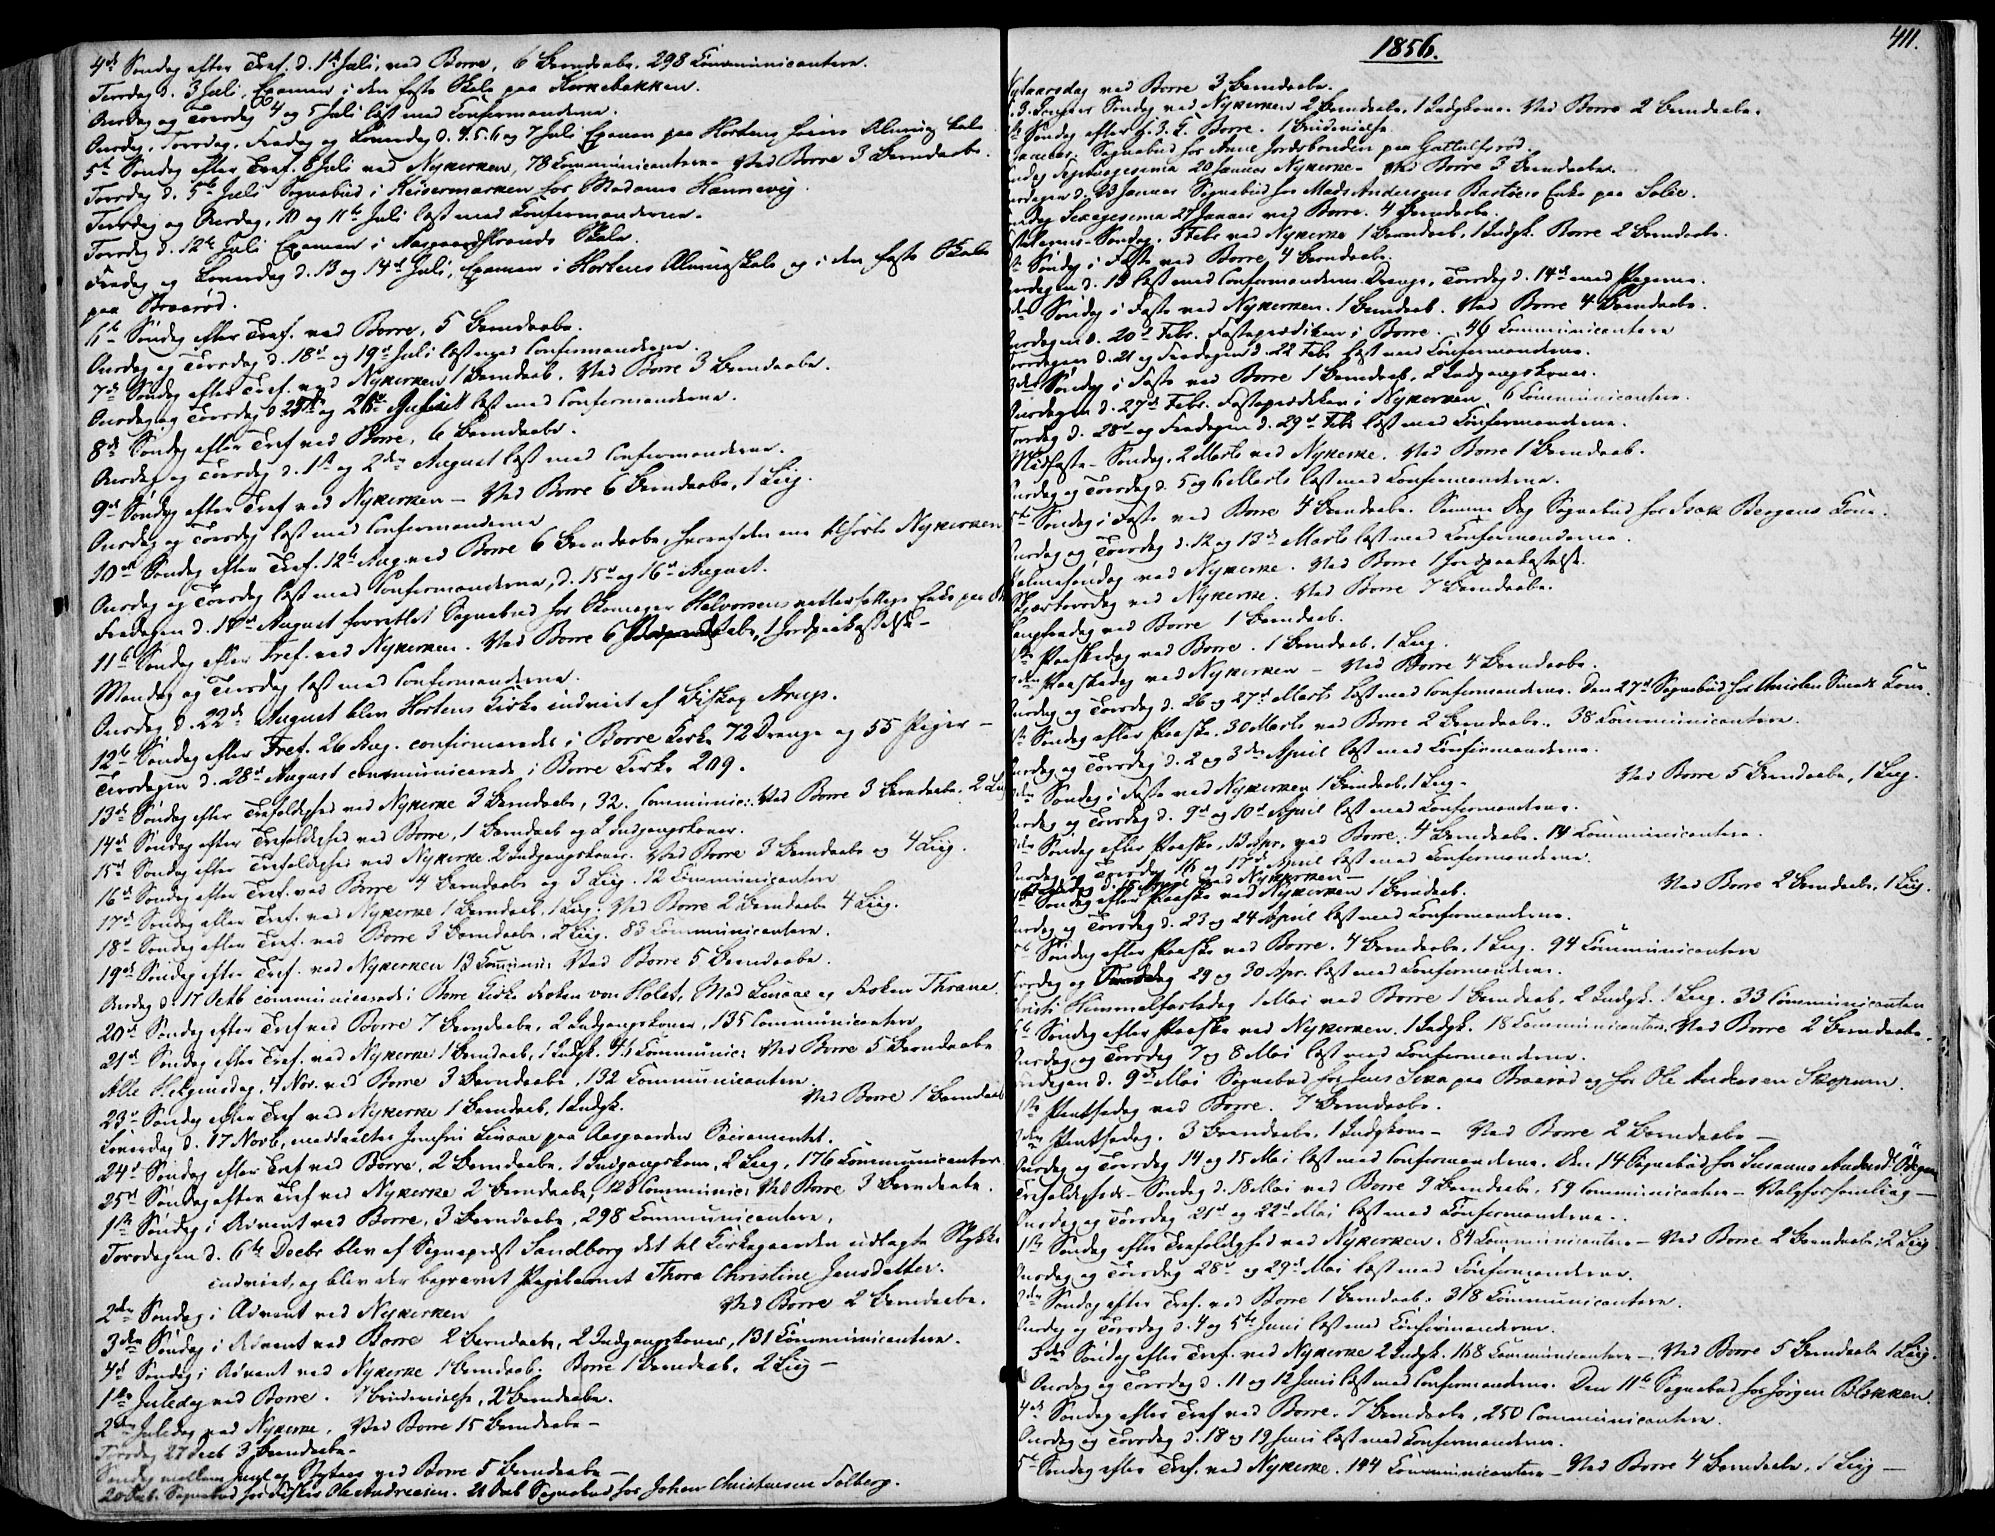 4de Søndag efter Tref. d. 1ste Juli, ved Borre, 6 Barndaabe. 298 Communicantere.
Tirsdag d. 3 Juli, Examen i den faste Skole paa Kirkebakken.
Onsdag og Torsdag 4 og 5 Juli læst med Confirmanderne.
Onsdag, Torsdag, Fredag og Løverdag d. 4. 5. 6 og 7 Juli Examen paa Hortens Almue Skole.
5te Søndag efter Tref. 8 Juli ved Nykirken, 78 Communicantere Ved Borre 3 Barndaabe.
Torsdag d. 5te Juli Sognebud i Keisermarken for Madame Hannevig.
Tirsdag og Onsdag, 10 og 11te Juli læst med Confirmanderne.
Torsdag d. 12te Juli Examen i Aasgaardstrands Skole.
Fredag og Løverdag d. 13 og 14de Juli, Examen i Hortens Almueskole og i den faste Skole
paa Braarød.
6te Søndag efter Tref. ved Borre, 5 Barndaabe.
Onsdag og Torsdag d. 18de og 19de Juli læst med Confirmanderne.
7de Søndag efter Tref. ved Nykirken 1 Barndaab. Ved Borre 3 Barndaabe.
Onsdag og Torsdag d. 25 og 26de Juli læst med Confirmanderne.
8de Søndag efter Tref ved Borre, 6 Barndaabe.
Onsdag og Torsdag d. 1ste og 2den August læst med Confirmanderne.
9de Søndag efter Tref ved Nykirken – Ved Borre 6 Barndaabe, 1 Liig.
Onsdag og Torsdag læst med Confirmanderne
10de Søndag efter Tref. 12te Aug. ved Borre 6 Barndaabe, hvoraf den ene tilhørte Nykirken
Onsdag og Torsdag læst med Confirmanderne, d. 15de og 16de August.
Fredagen d. 17de August forrettet Sognebud for Skomager Halvorsens Enke paa
11te Søndag efter Tref. ved Nykirken. Ved Borre 6 Barndaabe, 1 Jordpaakastelse –
Mandag og Tirsdag læst med Confirmanderne.
Onsdag d. 22de August blev Hortens Kirke indviet af Biskop Arup.
12te Søndag efter Tref. 26 Aug. confirmerede i Borre Kirke 72 Drenge og 55 Piger –
Tirsdagen d. 28de August communicerede i Borre Kirke 209.
13de Søndag efter Trefoldighed ved Nykirke 3 Barndaabe, 32 Communic: Ved Borre 3 Barndaabe. 2 Liig
14de Søndag efter Trefoldighed ved Borre, 1 Barndaab og 2 Indgangskoner.
15de Søndag efter Trefoldighed ved Nykirke. 2 Indgangskoner. Ved Borre 3 Barndaabe og 4 Liig.
16de Søndag efter Tref. ved Borre 4 Barndaabe og 3 Liig. 12 Communicantere
17de Søndag efter Tref. ved Nykirke 1 Barndaab, 1 Liig. Ved Borre 2 Barndaabe 4 Liig.
18de Søndag efter Tref. ved Borre 3 Barndaabe, 2 Liig. 83 Communicantere.
19de Søndag efter Tref. ved Nykirken 13 Communic: Ved Borre 5 Barndaabe.
Onsdag d. 17 Octb communicerede i Borre Kirke Frøken von Holst, Mad Linaae og Frøken Thrane.
20de Søndag efter Tref ved Borre 7 Barndaabe, 2 Indgangskoner, 135 Communicantere
21de Søndag efter Tref. ved Nykirke 1 Barndaab, 1 Indgk. Communic: Ved Borre 5 Barndaabe
Alle Helgensdag, 4 Nov. ved Borre 3 Barndaabe, 132 Communicantere.
23de Søndag efter Tref ved Nykirke 1 Barndaab, 1 Indgk. Ved Borre 1 Barndaab
Løverdag d. 17 Novb, meddeeltes Jomfru Linaae paa Aasgaarden Sacramentet.
24de Søndag efter Tref ved Borre, 2 Barndaabe, 1 Indgangskone, 2 Liig, 176 Communicantere
25de Søndag efter Tref ved Nykirke 2 Barndaabe, 123 Communic: Ved Borre 3 Barndaabe.
1ste Søndag i Advent ved Borre, 3 Barndaabe, 298 Communicantere.
Torsdagen d. 6te Decbr blev af Sognepræst Sandborg det til Kirkegaarden udlagte Stykke
indviet, og blev der begravet Pigebarnet Thora Christine Jensdatter.
2den Søndag i Advent ved Nykirken Ved Borre 2 Barndaabe.
3den Søndag i Advent ved Borre 2 Barndaabe, 2 Indgangskoner, 131 Communicantere.
4de Søndag i Advent ved Nykirke 1 Barndaab. Borre 1 Barndaab, 2 Liig –
1ste Juledag ved Borre. 1 Brudevielse, 2 Barndaabe.
2den Juledag ved Nykirke. Ved Borre 15 Barndaabe –
Torsdag 27 Decb 3 Barndaabe.
Søndag mellem Juul og Nytaar ved Borre 5 Barndaabe –
20 Decb. Sognebud for Fisker Ole Andreasen. 21 Decb Sognebud for Johan Christensen Solberg.
411.
1856.
Nytaarsdag ved Borre 3 Barndaabe.
H. 3. Kongers Søndag ved Nykirken 2 Barndaabe, 1 Indgkone. Ved Borre 2 Barndaabe.
Søndag efter H. 3. K. Borre. 1 Brudevielse
Januar. Sognebud for Anne Jordsbonden paa Gattulfsrød.
Søndag Septuagesima 20 Januar Nykirke – Ved Borre 3 Barndaabe.
Onsdagen d. 23 Januar Sognebud for Mads Andersens Bastøens Enke paa Solie.
Søndag Sexagesima 27 Januar ved Borre. 4 Barndaabe.
Fastelavns-Søndag, 3 Febr ved Nykirke 1 Barndaab, 1 Indgk. Borre 2 Barndaabe.
1ste Søndag i Faste ved Borre, 4 Barndaabe.
Onsdagen d. 13 læst med Confirmanderne Drenge, Torsdag d. 14de med Pigerne.
2den Søndag i Faste ved Nykirken. 1 Barndaab. Ved Borre 4 Barndaabe.
Onsdagen d. 20de Febr. Fasteprædiken i Borre. 46 Communicantere
Torsdagen d. 21 og Fredagen d. 22 Febr læst med Confirmanderne.
3die Søndag i Faste ved Borre 1 Barndaab, 2 Indgangskoner.
Onsdagen d. 27de Febr. Fasteprædiken i Nykirken, 6 Communicantere.
Torsdag d. 28de og Fredagen d. 29de Febr læst med Confirmanderne.
Midfaste-Søndag, 2 Marts ved Nykirke. Ved Borre 1 Barndaab.
Onsdag og Torsdag d. 5 og 6 Marts læst med Confirmanderne.
5te Søndag i Faste ved Borre 4 Barndaabe. Samme Dag Sognebud for Isak Bergans Kone.
Onsdag og Torsdag d. 12 og 13de Marts læst med Confirmanderne.
Palmesøndag ved Nykirke. Ved Borre 1 Jordpaakastelse.
Skjærtorsdag ved Nykirke. Ved Borre 7 Barndaabe.
Langfredag ved Borre 1 Barndaab.
1ste Paaskedag ved Borre. 1 Barndaab, 1 Liig.
2den Paaskedag ved Nykirken – Ved Borre 4 Barndaabe.
Onsdag og Torsdag d. 26 og 27de Marts læst med Confirmanderne. Den 27de Sognebud for Kone.
1ste Søndag efter Paaske, 30 Marts ved Borre 2 Barndaabe. 38 Communicantere.
Onsdag og Torsdag d. 2 og 3die April læst med Confirmanderne.
2den Søndag i Faste ved Nykirken 1 Barndaab, 1 Liig – Ved Borre 5 Barndaabe, 1 Liig.
Onsdag og Torsdag d. 9de og 10de April læst med Confirmanderne.
3die Søndag efter Paaske, 13 Apr. ved Borre. 4 Barndaabe. 14 Communicantere.
Onsdag og Torsdag 16 og 17de April læst med Confirmanderne.
4de Søndag efter Paaske ved Nykirken 1 Barndaab. Ved Borre 2 Barndaabe, 1 Liig.
Onsdag og Torsdag d. 23 og 24 April læst med Confirmanderne.
5te Søndag efter Paaske ved Borre. 4 Barndaabe, 1 Liig. 94 Communicantere
Tirsdag og Onsdag 29 og 30 Apr. læst med Confirmanderne.
Christi Himmelfartsdag 1 Mai ved Borre 1 Barndaab, 2 Indgk. 1 Liig. 33 Communicantere
6te Søndag efter Paaske ved Nykirken. 1 Indgk. 18 Communicantere. Ved Borre 2 Barndaabe.
Onsdag og Torsdag 7 og 8 Mai læst med Confirmanderne.
Fredagen d. 9de Mai Sognebud for Jens paa Braarød og for Ole Andersen Skoppum.
1ste Pintsedag ved Borre. 7 Barndaabe.
2den Pintsedag. 3 Barndaabe. 1 Indgkone – Ved Borre 2 Barndaabe –
Onsdag og Torsdag 14 og 15 Mai læst med Confirmanderne. Den 14 Sognebud for Susanne Andersdr
Trefoldigheds-Søndag d. 18 Mai ved Borre 9 Barndaabe. 59 Communicantere – Valgforsamling –
Onsdag og Torsdag 21de og 22de Mai læst med Confirmanderne.
1ste Søndag efter Trefoldighed ved Nykirken. 84 Communicantere – Ved Borre 2 Barndaabe, 2 Liig
Onsdag og Torsdag 28de og 29de Mai læst med Confirmanderne.
2den Søndag efter Tref. ved Borre 1 Barndaab. 318 Communicantere.
Onsdag og Torsdag d. 4 og 5te Juni læst med Confirmanderne.
3die Søndag efter Tref. ved Nykirke 2 Indgk. 168 Communicantere – Ved Borre 5 Barndaabe 1 Liig.
Onsdag og Torsdag d. 11 og 12 Juni læst med Confirmanderne. Den 11te Sognebud for Jørgen Blikken.
4de Søndag efter Tref ved Borre. 7 Barndaabe, 250 Communicantere.
Onsdag og Torsdag d. 18 og 19 Juni læst med Confirmanderne.
5te Søndag efter Tref. ved Nykirke. 144 Communicantere – Ved Borre 4 Barndaabe, 1 Liig –